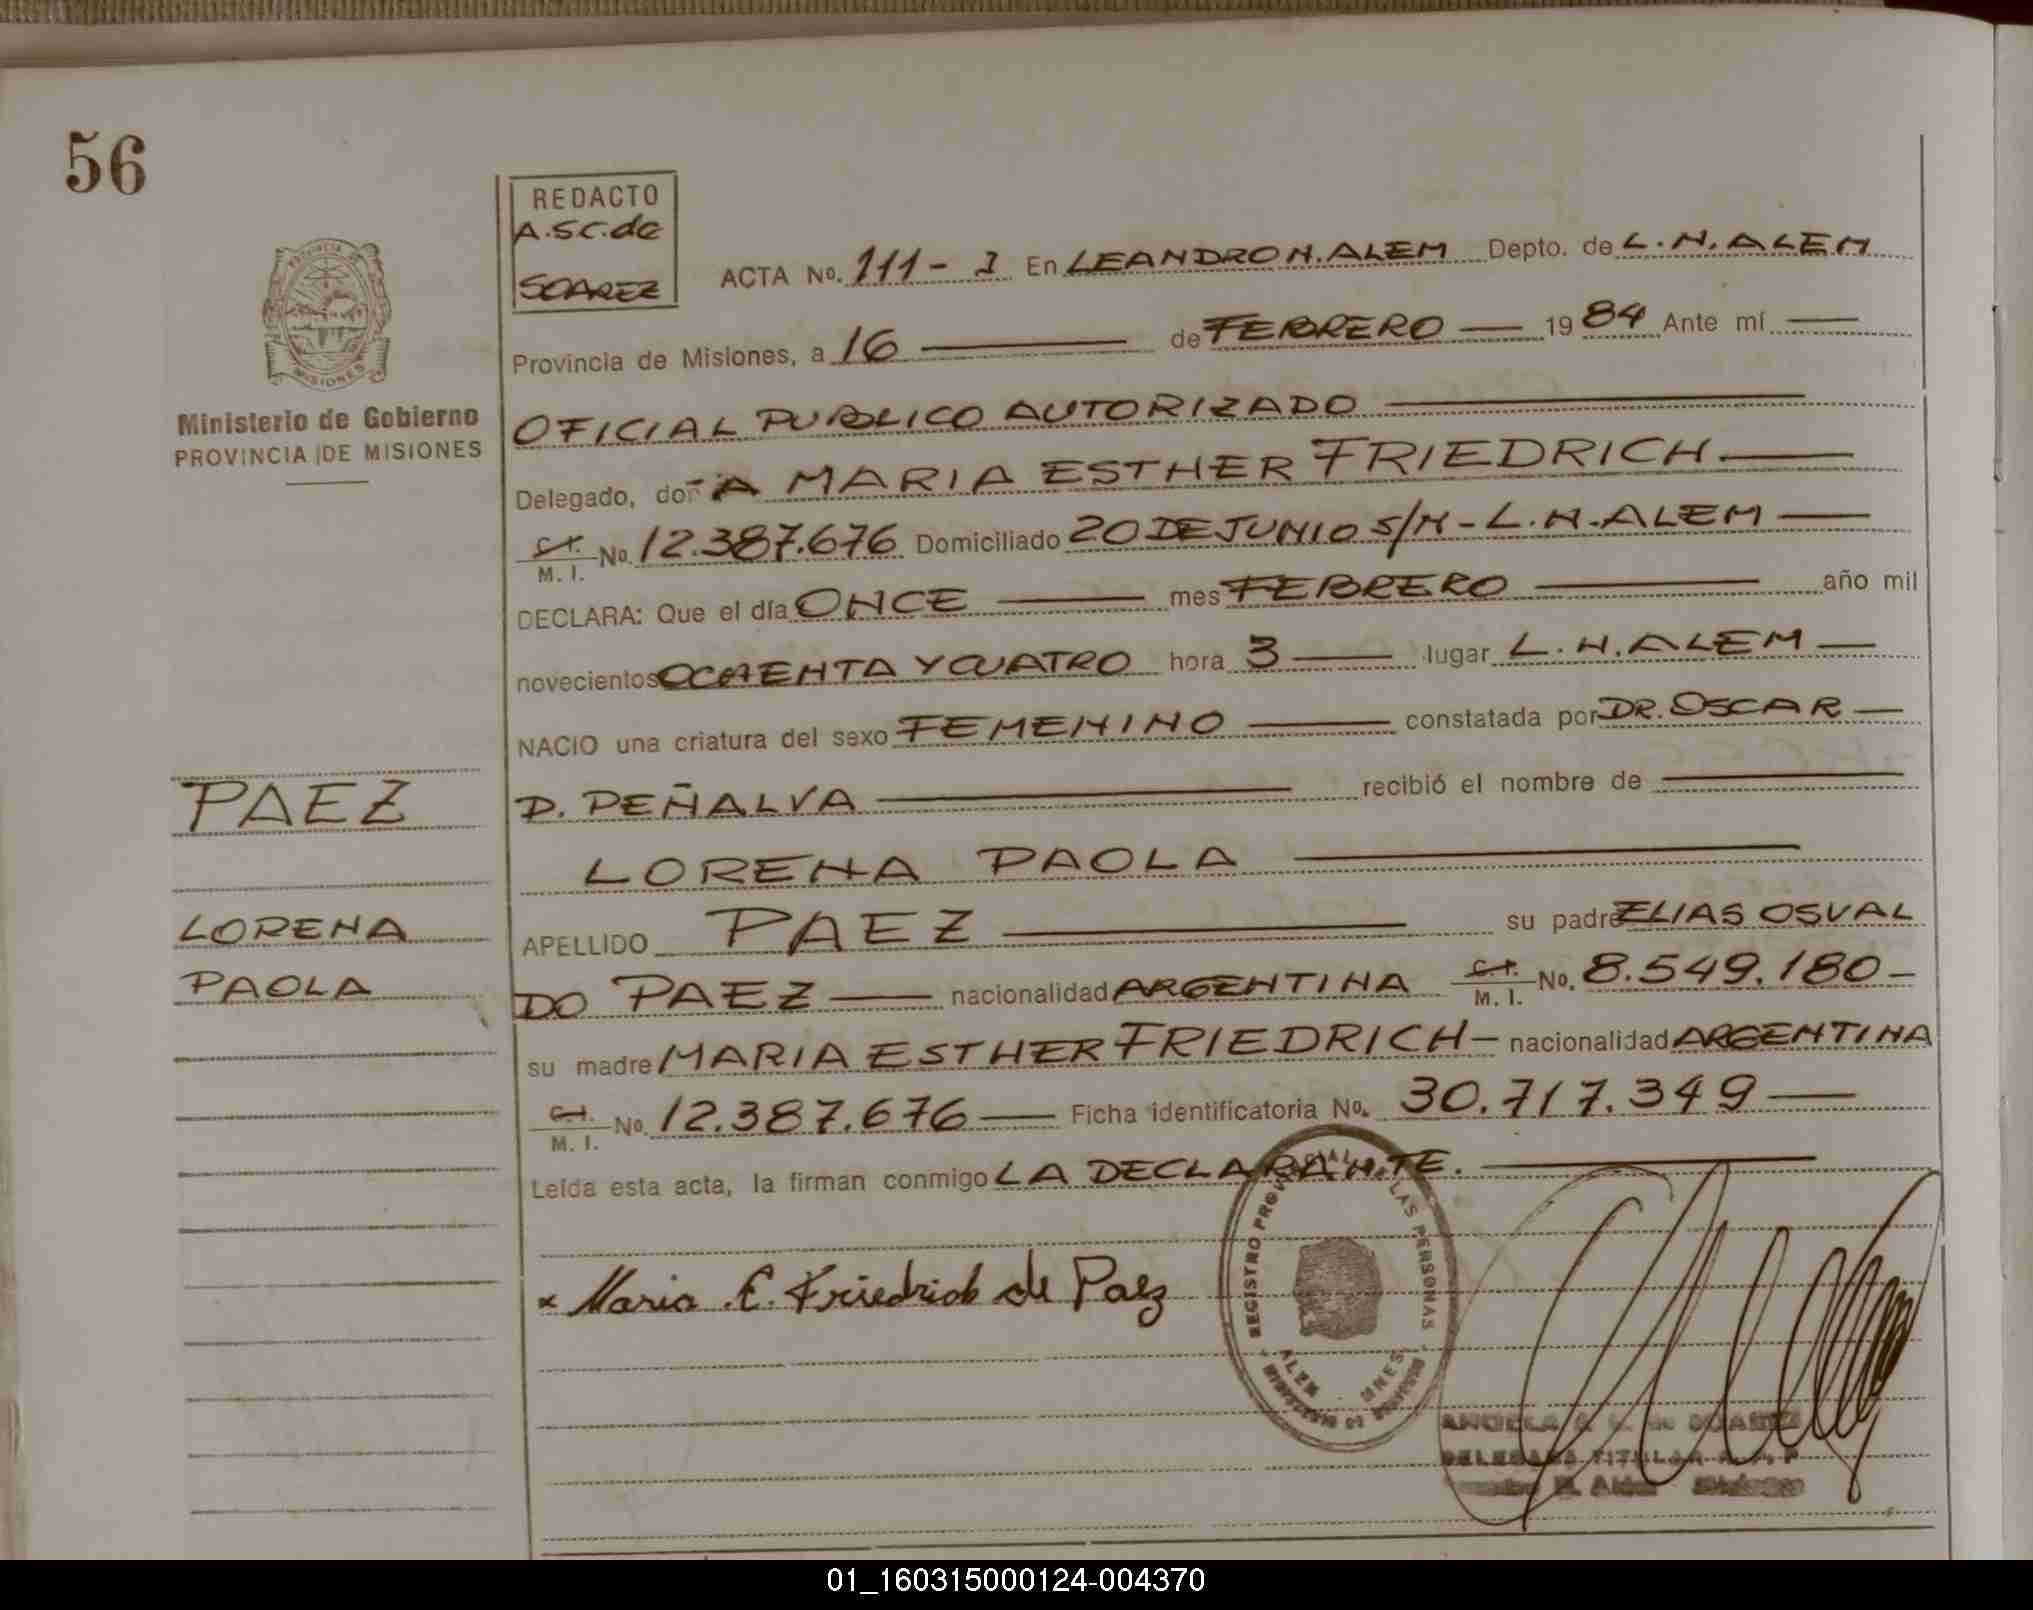 56
REDACTO
A.S.C. de
SOAREZ
PROVINCIA DE
MISIONES
Ministerio de Gobierno
PROVINCIA DE MISIONES
ACTA No. 111 - I En LEANDRO N. ALEM Depto. de L. N. ALEM
Provincia de Misiones, a 16 de FEBRERO 1984 Ante mí
OFICIAL PUBLICO AUTORIZADO
Delegado, doña MARIA ESTHER FRIEDRICH
C.I.
M. I. No. 12.387.676 Domiciliado 20 DE JUNIO S/N - L. N. ALEM
DECLARA: Que el día ONCE mes FEBRERO año mil
novecientos OCHENTA Y CUATRO hora 3 lugar L. N. ALEM
NACIO una criatura del sexo FEMENINO constatada por DR. OSCAR
D. PEÑALVA recibió el nombre de
LORENA PAOLA
APELLIDO PAEZ su padre ELIAS OSVAL
DO PAEZ nacionalidad ARGENTINA C.I. M. I. No. 8.549.180
su madre MARIA ESTHER FRIEDRICH nacionalidad ARGENTINA
C.I.
M. I. No. 12.387.676 Ficha identificatoria No. 30.717.349
Leída esta acta, la firman conmigo LA DECLARANTE.
PAEZ
LORENA
PAOLA
x Maria E. Friedrich de Paez
REGISTRO PROVINCIAL DE LAS PERSONAS
ALEM MNES
ANGELA S. C. de SOAREZ
DELEGADA TITULAR R. P. P
N. Alem Misiones
01_160315000124-004370